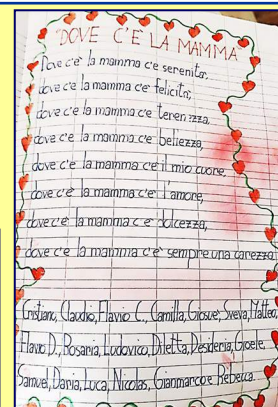 "DOVE C'E LA MAMMA"
Dove c'e' la mamma c'e serenita',
dove c'e la mamma c'e' felicita;
dove c'e la mamma c'e' tenerezza,
dove c'e' la mamma c'e' bellezza,
dove c'e' la mamma c'e' il mio cuore,
dove c'e' la mamma c'e' l'amore,
dove c'e' la mamma c'e' dolcezza,
dove c'e' la mamma c'e' sempre una carezza!
Cristiano, Claudio, Flavio C., Camilla, Giosue', Sveva, Matteo,
Flavio D., Rosaria, Ludovico, Diletta, Desideria, Gioele.
Samuel, Daria, Luca, Nicolas, Gianmarco e Rebecca.